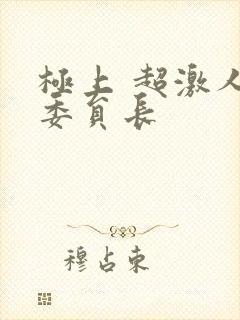 極上 超激人
委員長
穆占東